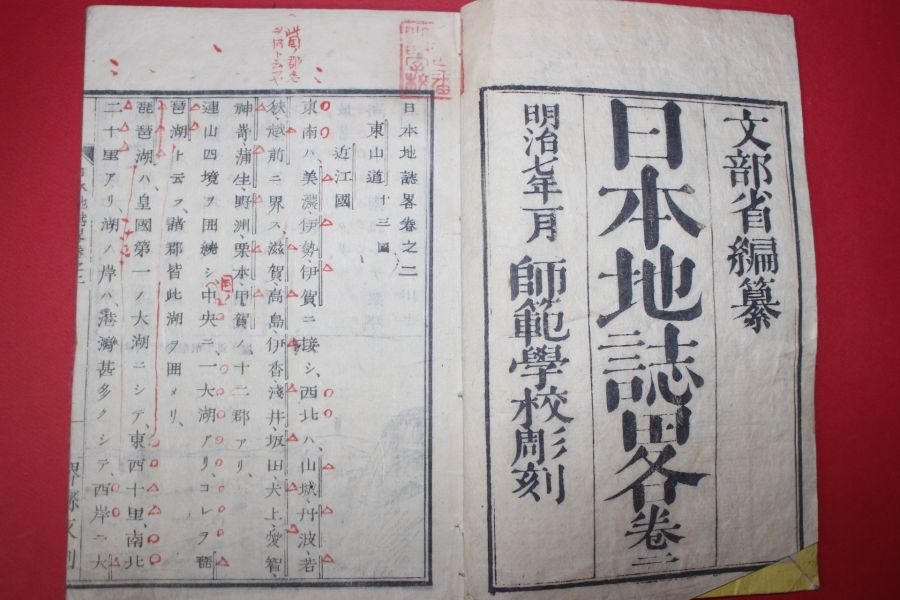 文部省編纂
日本地誌畧卷二
明治七年一月 師範學校彫刻
日本地誌畧卷之二
東山道十三國
近江國
東南ハ、美濃伊勢、伊賀ニ接シ、西北ハ、山城、丹波、若
狹、越前ニ界ス、滋賀、高島伊香、淺井、坂田犬上、愛智、
神嵜、蒲生、野洲、栗本、甲賀ノ十二郡アリ、
連山四境ヲ囲繞シ、中央ニ、一大湖アリ、コレヲ琵
琶湖ト云フ、諸郡皆此湖ヲ囲メリ、
琵琶湖ハ、皇國第一ノ大湖ニシテ、東西十里、南北
二十里アリ、湖ノ岸ハ、港灣甚多クシテ、西岸ニ大